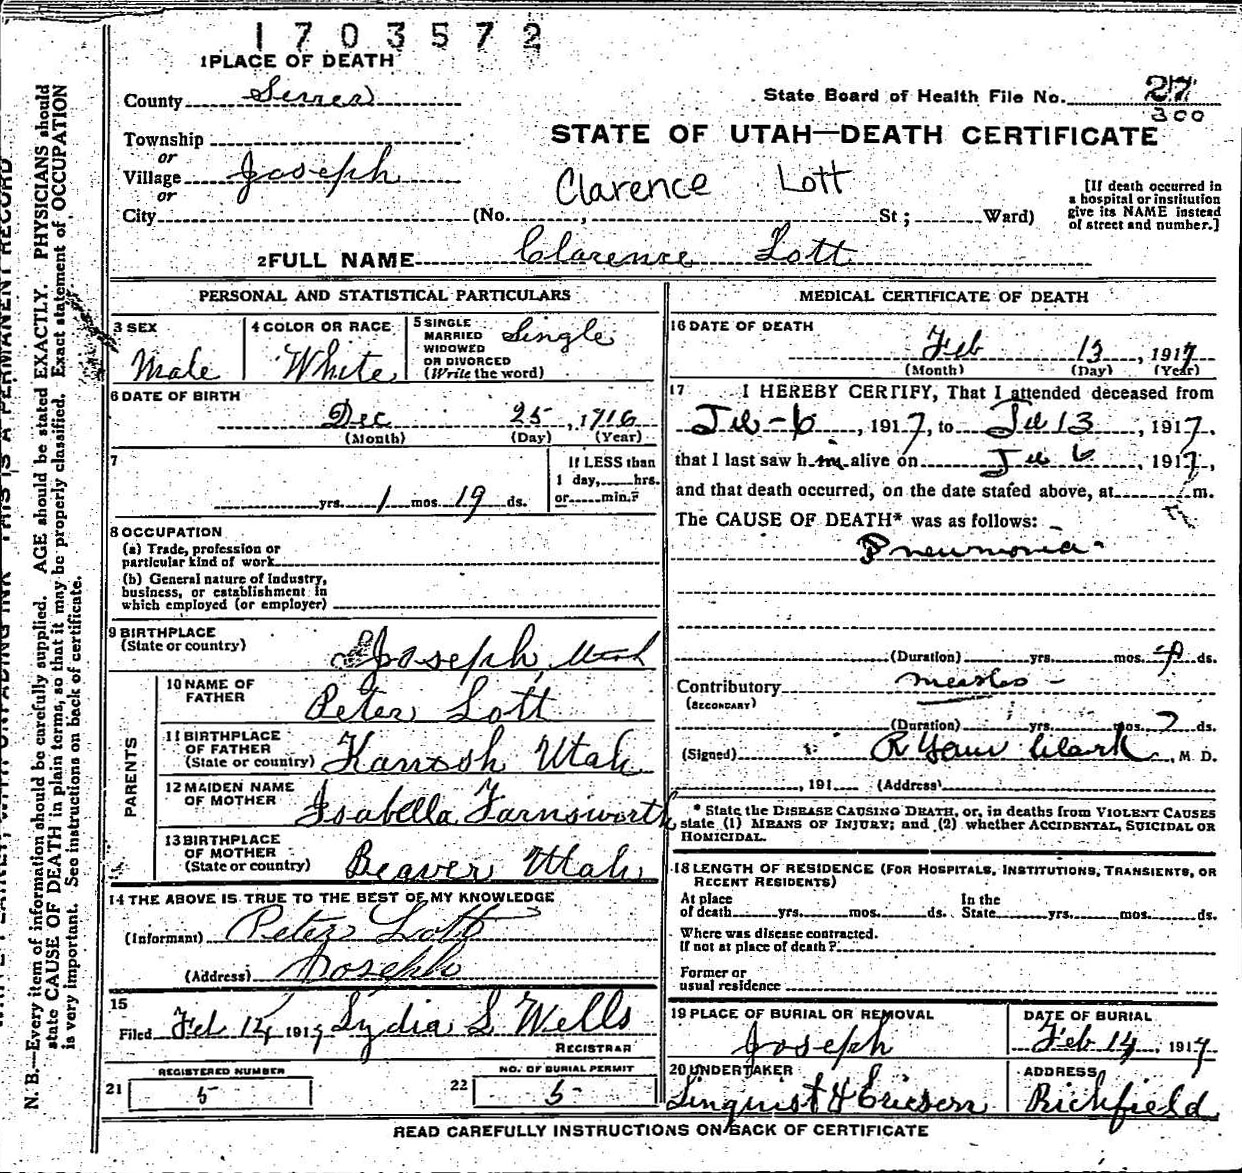 1703572
1 PLACE OF DEATH
County Sevier
State Board of Health File No. 27
300
Township
or
Village Joseph
or
City (No. , St ; Ward)
STATE OF UTAH—DEATH CERTIFICATE
Clarence Lott
[If death occurred in
a hospital or institution
give its NAME instead
of street and number.]
2 FULL NAME Clarence Lott
PERSONAL AND STATISTICAL PARTICULARS
3 SEX
Male
4 COLOR OR RACE
White
5 SINGLE
MARRIED
WIDOWED
OR DIVORCED
(Write the word)
Single
6 DATE OF BIRTH
Dec 25, 1916
(Month) (Day) (Year)
7
yrs. 1 mos. 19 ds.
If LESS than
1 day, hrs.
or min.?
8 OCCUPATION
(a) Trade, profession or
particular kind of work
(b) General nature of industry,
business, or establishment in
which employed (or employer)
9 BIRTHPLACE
(State or country)
Joseph, Utah
PARENTS
10 NAME OF
FATHER
Peter Lott
11 BIRTHPLACE
OF FATHER
(State or country)
Kanosh Utah
12 MAIDEN NAME
OF MOTHER
Isabella Farnsworth
13 BIRTHPLACE
OF MOTHER
(State or country)
Beaver Utah
14 THE ABOVE IS TRUE TO THE BEST OF MY KNOWLEDGE
(Informant) Peter Lott
(Address) Joseph
15
Filed Feb 14, 1917 Lydia S. Wells
REGISTRAR
REGISTERED NUMBER
21 5
NO. OF BURIAL PERMIT
22 5
MEDICAL CERTIFICATE OF DEATH
16 DATE OF DEATH
Feb 13, 1917
(Month) (Day) (Year)
17 I HEREBY CERTIFY, That I attended deceased from
Feb-6, 1917, to Feb 13, 1917,
that I last saw him alive on Feb 6, 1917,
and that death occurred, on the date stated above, at m.
The CAUSE OF DEATH* was as follows:
Pneumonia
(Duration) yrs. mos. ds.
Contributory measles
(SECONDARY)
(Duration) yrs. mos. 7 ds.
(Signed) Clark, M. D.
, 191 (Address)
* State the DISEASE CAUSING DEATH, or, in deaths from VIOLENT CAUSES
state (1) MEANS OF INJURY; and (2) whether ACCIDENTAL, SUICIDAL OR
HOMICIDAL.
18 LENGTH OF RESIDENCE (FOR HOSPITALS, INSTITUTIONS, TRANSIENTS, OR
RECENT RESIDENTS)
At place
of death yrs. mos. ds.
In the
State yrs. mos. ds.
Where was disease contracted.
If not at place of death?
Former or
usual residence
19 PLACE OF BURIAL OR REMOVAL
Joseph
DATE OF BURIAL
Feb 14, 1917
20 UNDERTAKER
Linquist & Ericsen
ADDRESS
Richfield
READ CAREFULLY INSTRUCTIONS ON BACK OF CERTIFICATE
N. B.—Every item of information should be carefully supplied. AGE should be stated EXACTLY. PHYSICIANS should
state CAUSE OF DEATH in plain terms, so that it may be properly classified. Exact statement of OCCUPATION
is very important. See instructions on back of certificate.